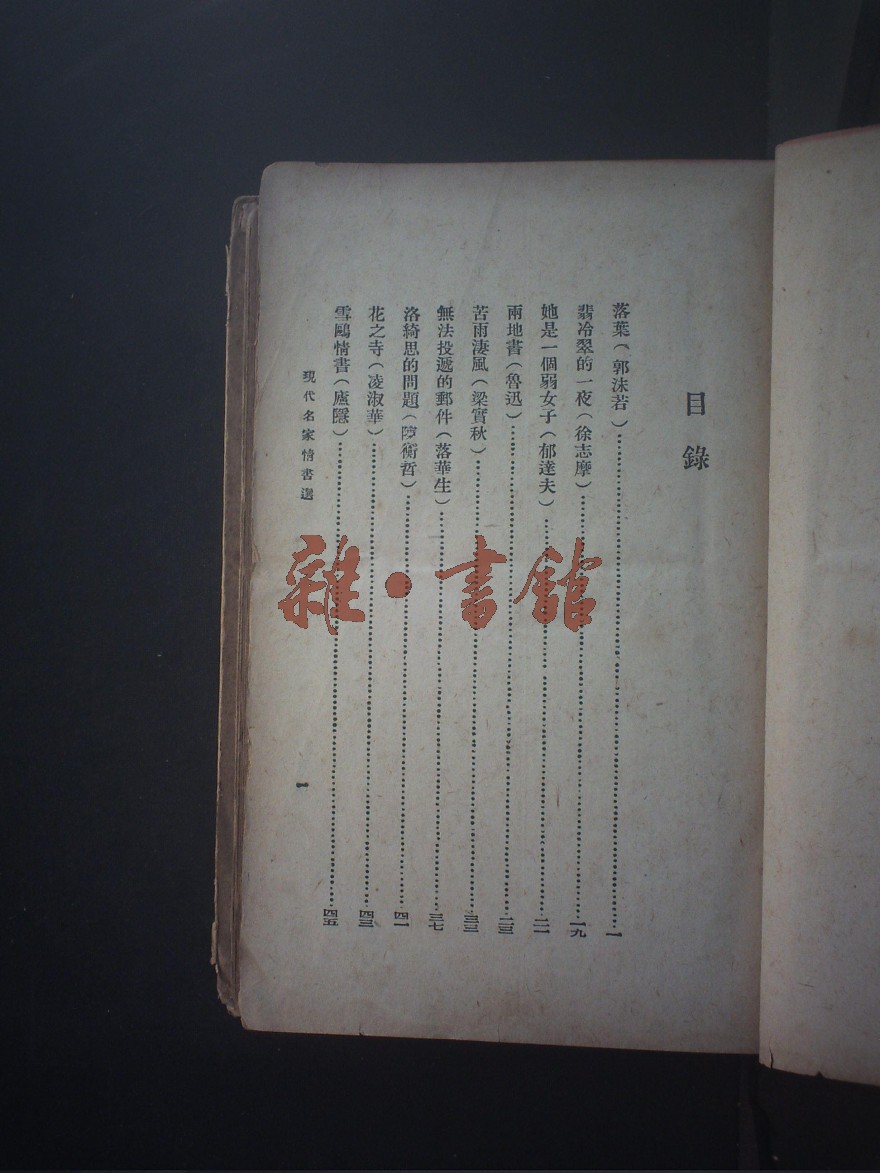 目錄
落葉(郭沫若)…………一
翡冷翠的一夜(徐志摩)…………一九
她是一個弱女子(郁達夫)…………二一
兩地書(魯迅)…………二三
苦雨淒風(梁實秋)…………三三
無法投遞的郵件(落華生)…………三七
洛綺思的問題(陳衡哲)…………四一
花之寺(凌淑華)…………四三
雪鷗情書(廬隱)…………四五
現代名家情書選
一
雜·書館